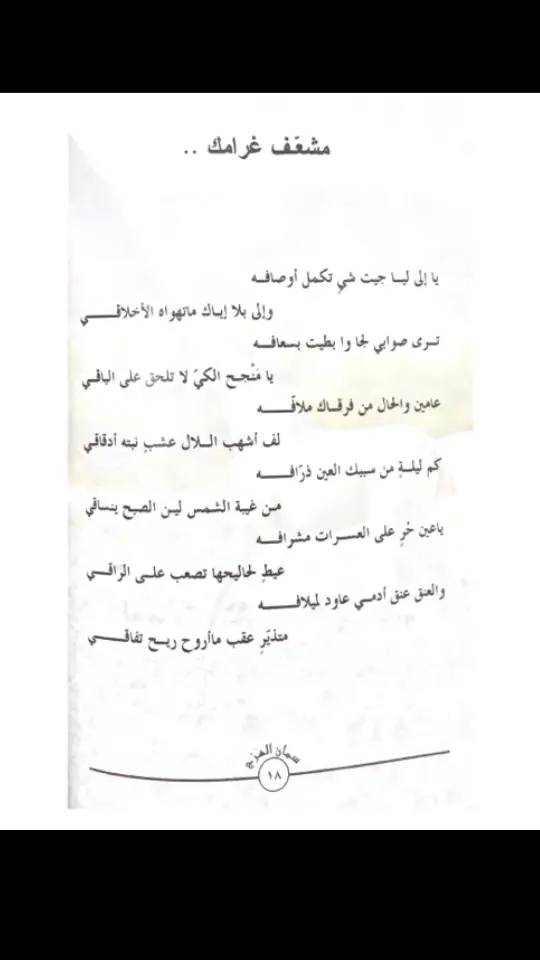 مشعّف غرامك ..
يا إلى ليا جيت شيٍ تكمل أوصافه
وإلى بلا إياك ماتهواه الأخلاقي
ترى صوابي لجا وا بطيت بسعافه
يا مَنْجح الكيّ لا تلحق على الباقي
عامين والحال من فرقاك ملافّه
لف أشهب اللال عشبٍ نبته أدقاقي
كم ليلةٍ من سببك العين ذرّافه
من غيبة الشمس لين الصبح ينساقي
ياعين حُرٍ على العسرات مشرافه
عيطٍ لحاليحها تصعب على الراقي
والعنق عنق أدمي عاود لميلافه
متذيّرٍ عقب مأروح ريح تفاقي
سمان الهرج
١٨